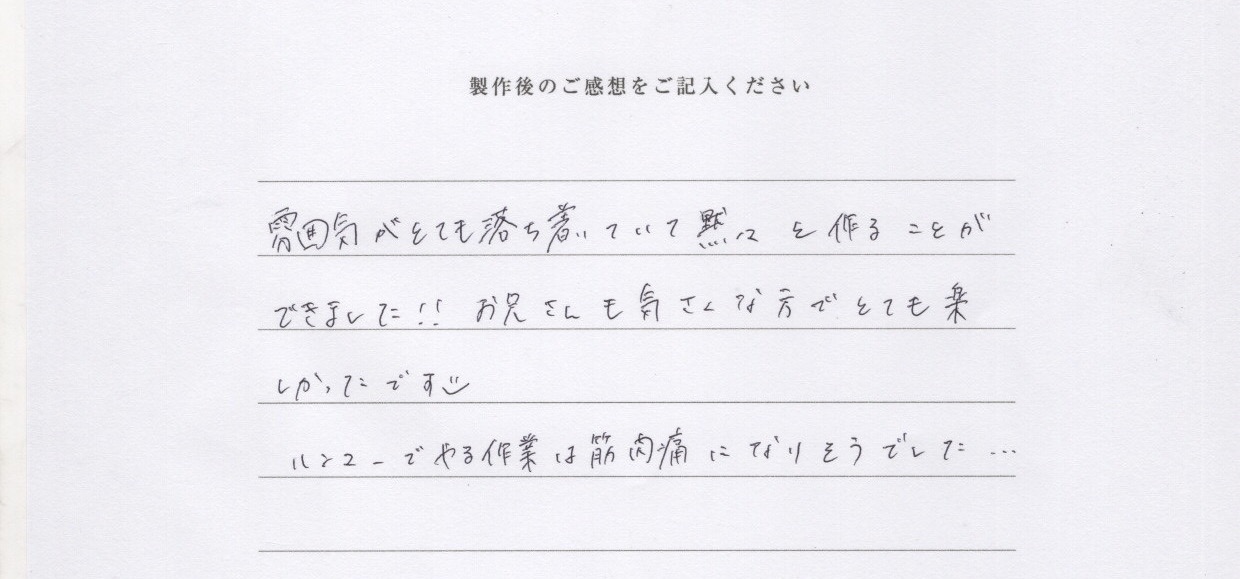 製作後のご感想をご記入ください
雰囲気がとても落ち着いていて黙々と作ることが
できました!! お兄さんも気さくな方でとても楽
しかったです
ハンマーでやる作業は筋肉痛になりそうでした…